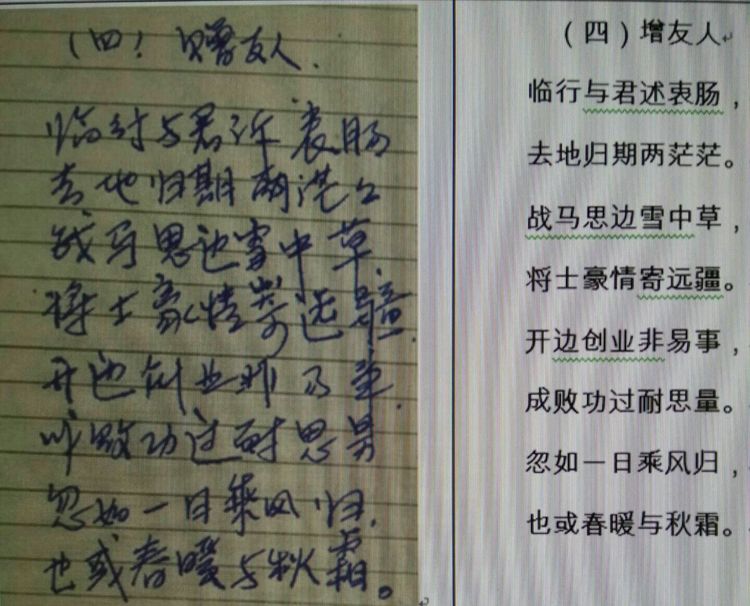 (四) 赠友人.
临行与君诉衷肠
去地归期两茫々
战马思边雪中草
将士豪情寄远疆
开边创业非易事.
成败功过耐思量
忽如一日乘风归,
也或春暖与秋霜。
(四)增友人
临行与君述衷肠,
去地归期两茫茫。
战马思边雪中草,
将士豪情寄远疆。
开边创业非易事,
成败功过耐思量。
忽如一日乘风归,
也或春暖与秋霜。